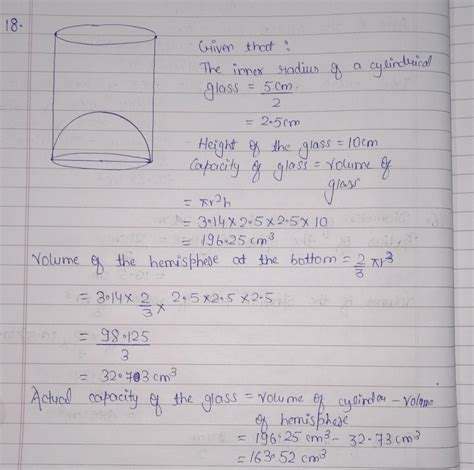 18.
Given that :
The inner radius of a cylindrical
glass = 5cm
2
= 2.5cm
Height of the glass = 10cm
Capacity of glass = volume of
glass
= πr²h
= 3.14 × 2.5 × 2.5 × 10
= 196.25 cm³
Volume of the hemisphere at the bottom = 2/3 πr³
= 3.14 × 2/3 × 2.5 × 2.5 × 2.5
= 98.125
3
= 32.703 cm³
Actual capacity of the glass = volume of cylinder - volume
of hemisphere
= 196.25 cm³ - 32.73 cm³
= 163.52 cm³